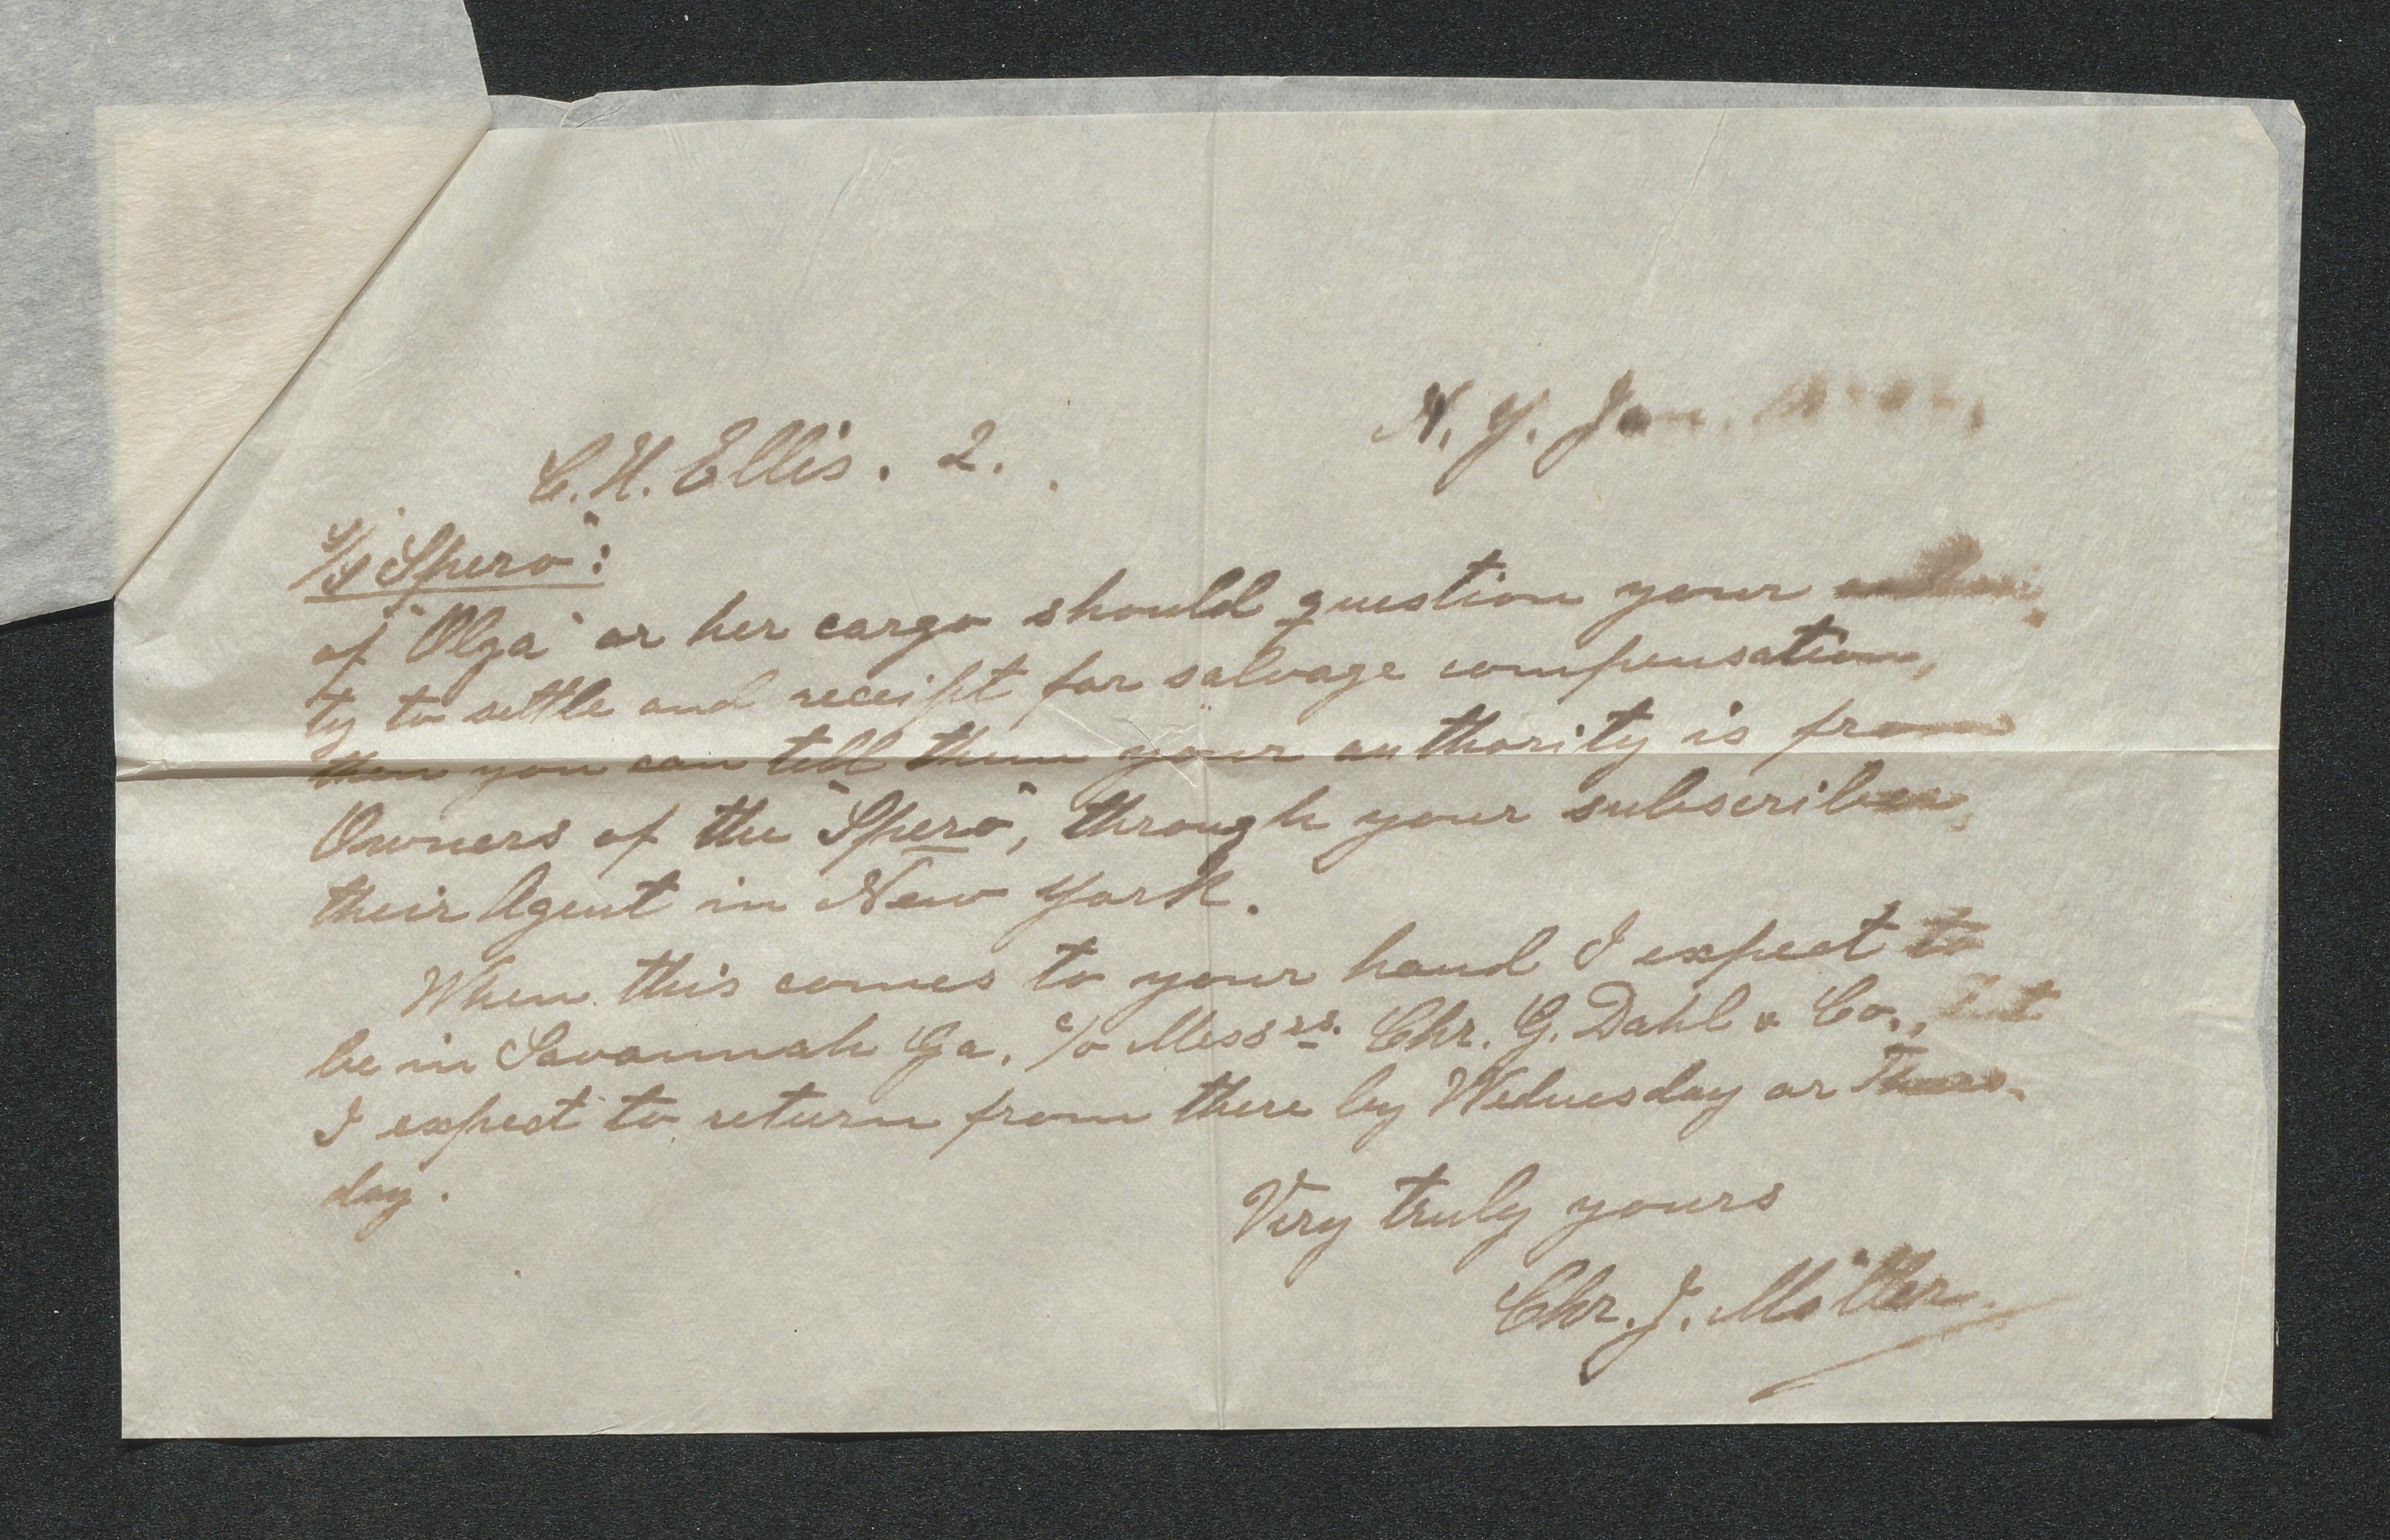 C. H. Ellis. 2. N. Y. Jan.
S/S "Spero":
of "Olga" or her cargo should question your authori-
ty to settle and receipt for salvage compensation,
then you can tell them your authority is from
Owners of the "Spero", through your subscriber,
their Agent in New York.
When this comes to your hand I expect to
be in Savannah Ga. c/o Messrs. Chr. G. Dahl & Co., but
I expect to return from there by Wednesday or Thurs-
day.
Very truly yours
Chr. J. Möller.